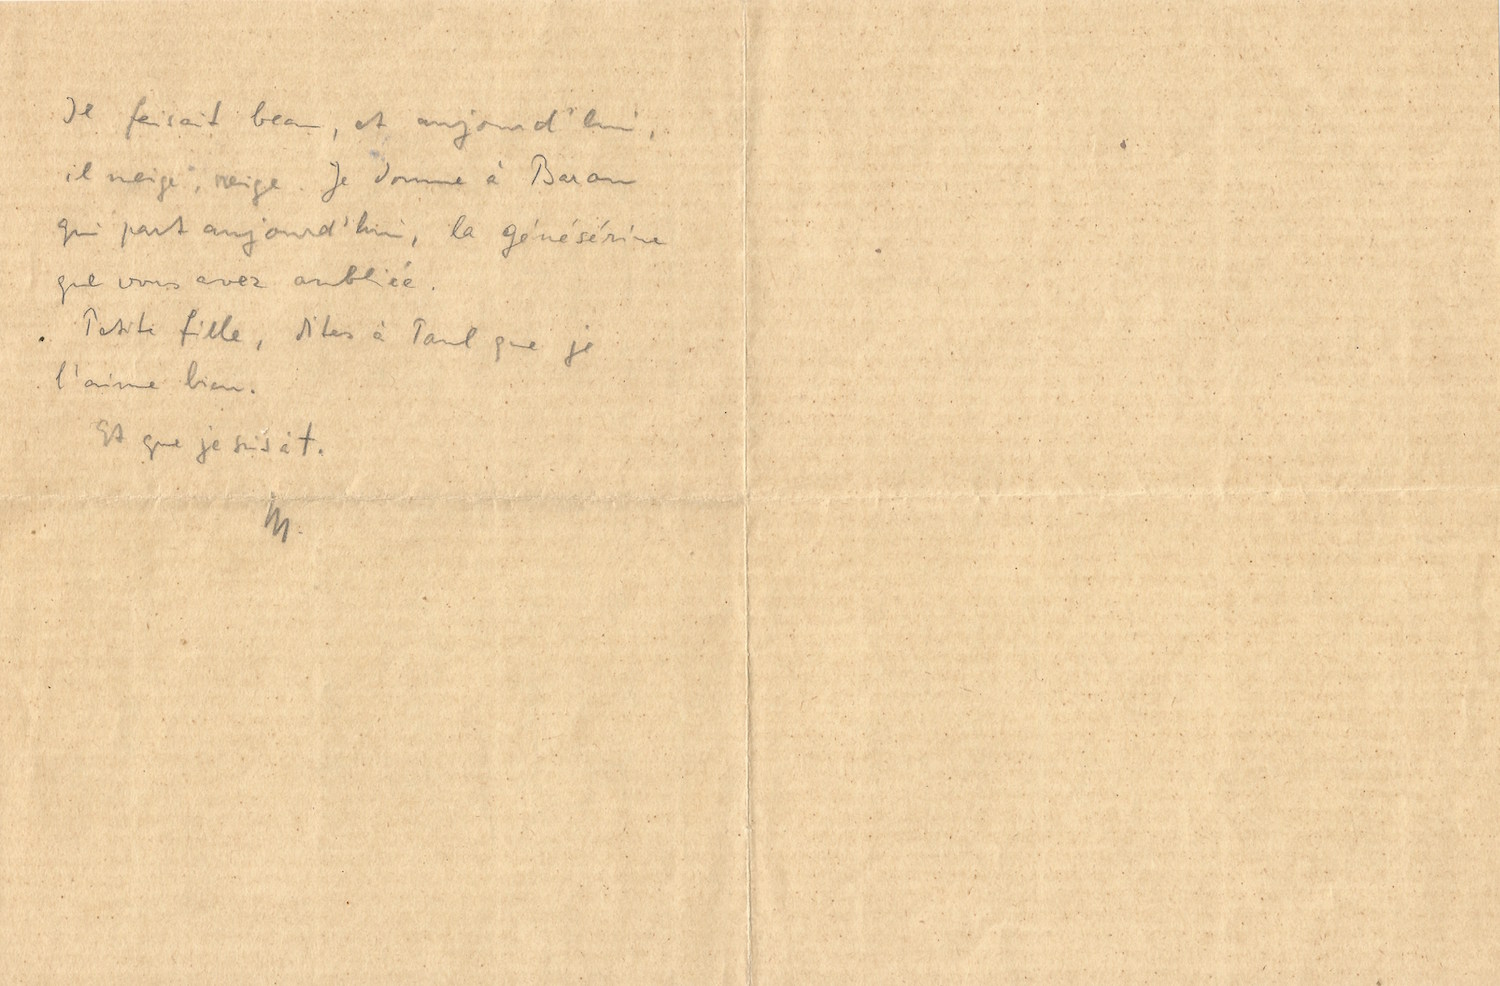 Il faisait beau, et aujourd'hui,
il neige, neige. Je donne à Baron
qui part aujourd'hui, la génésérine
que vous avez oubliée.
Petite fille, dites à Paul que je
l'aime bien.
Et que je suis à t.
M.